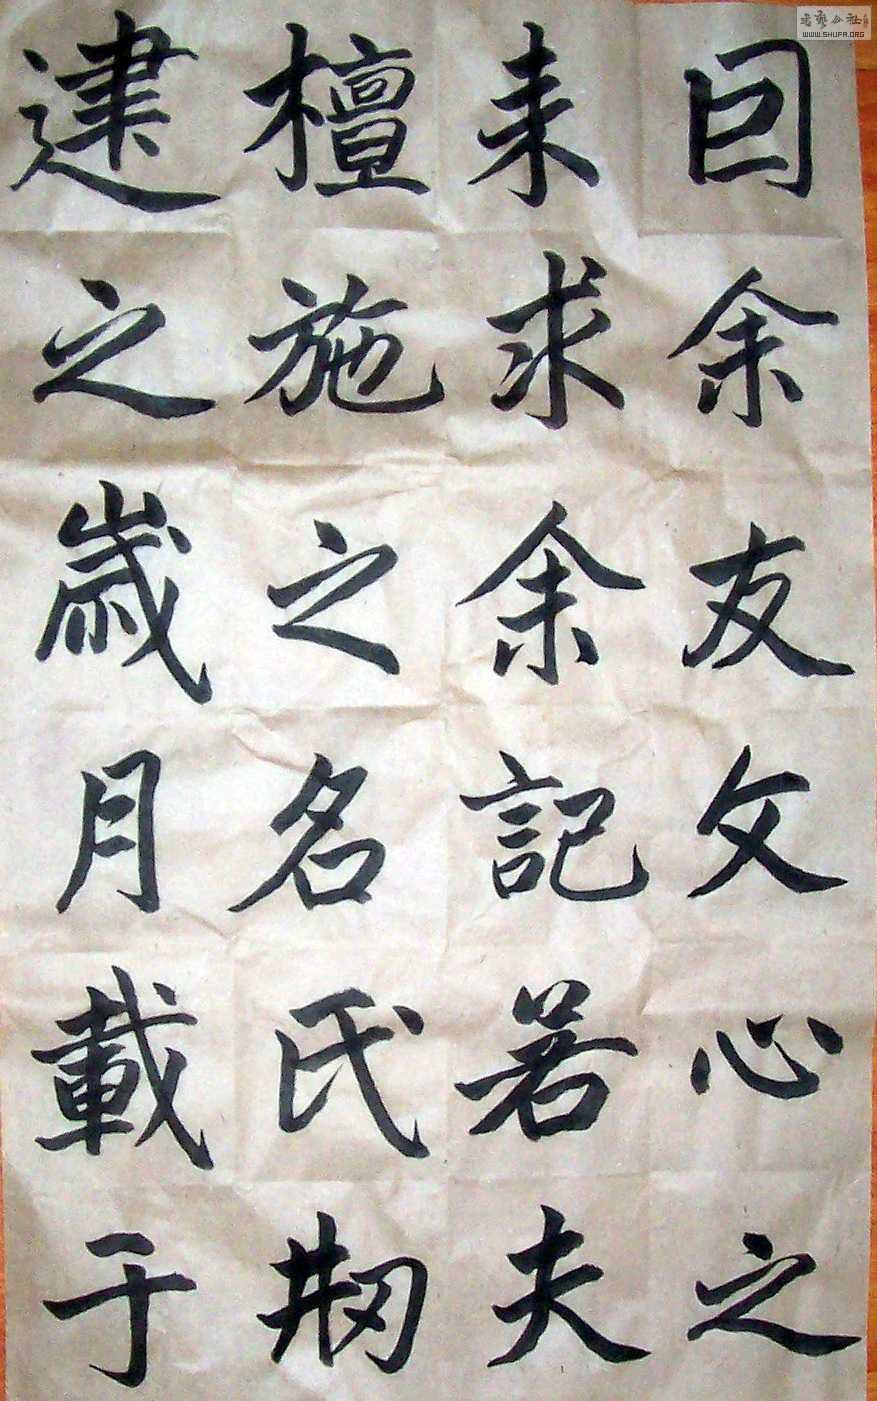 囙余友文心之
来求余記若夫
檀施之名氏刱
建之歲月載于
书艺公社
WWW.SHUFA.ORG